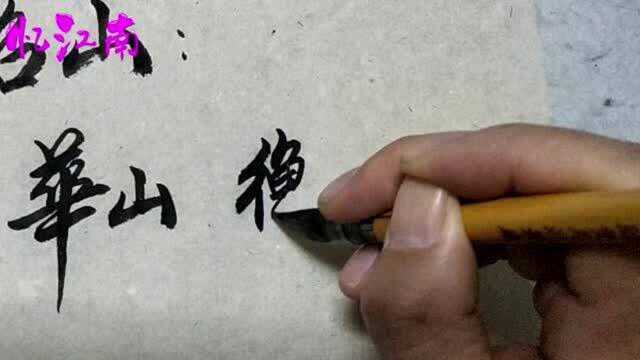 忆江南
山：
華山